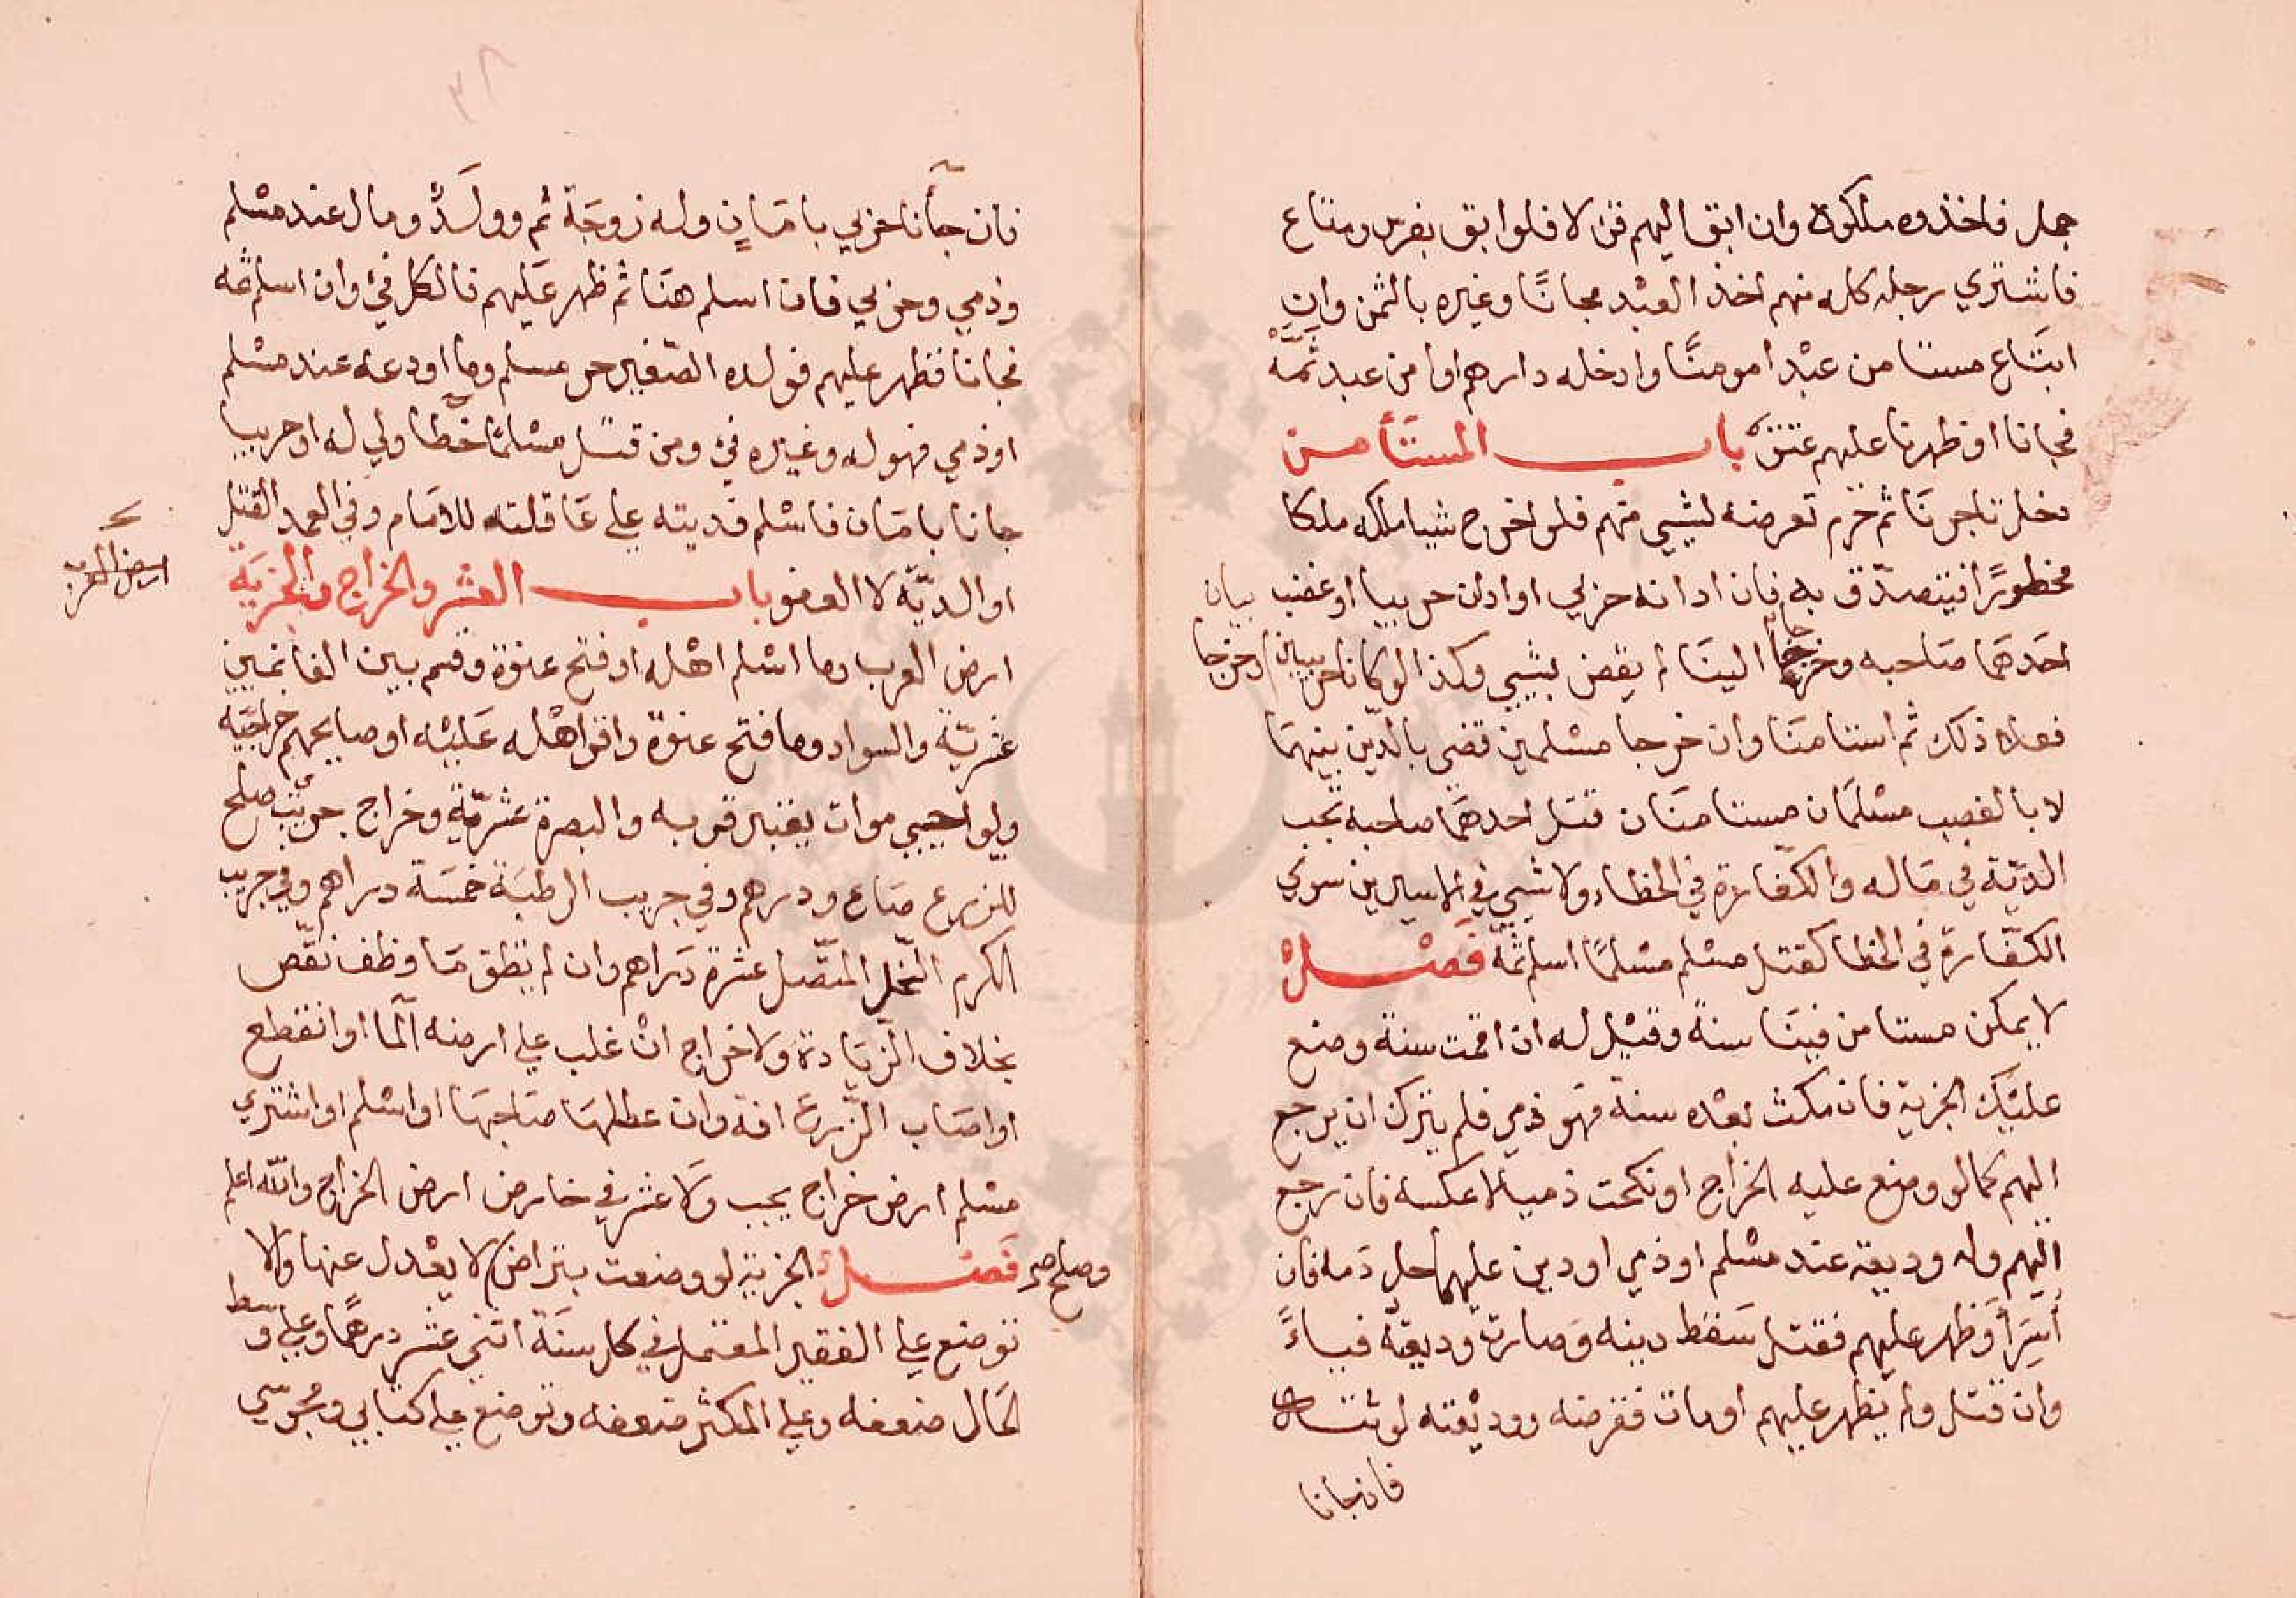 جمل فاخذوه ملكوه وان ابق اليهم قن لا فلو ابق بفرس ومتاع
فاشتري رجل كله منهم اخذ العبد مجانًا وغيره بالثمن وان
ابتاع مستامن عبدا مومنًا وادخله دارهم او امن عبد ثمَّهْ
فجانا او ظهرنا عليهم عتق باب المستأمن
دخل تاجرنا ثم حرم تعرضه لشيي منهم فلو اخرج شيا ملكه ملكا
محظورًا فيتصدق به فان ادانه حربي او ادان حربيا او غضب
احدهما صاحبه وخرجا الينا لم يقض بشيي وكذا لو كانا حربيين
فعلا ذلك ثم استامنا وان خرجا مسلمين قضي بالدين بينهما
لا بالغصب مسلمان مستامنان قتل احدهما صاحبه تجب
الديّة في ماله والكفّارة في الخطاء ولا شيي في الاسيرين سوي
الكفّارة في الخطا كقتل مسلم مسلمًا اسلم ثمّه فَصْل
لا يمكن مستامن فينا سنة وقيل له ان اقمت سنة وضع
عليك الجزية فان مكث بعده سنة فهو ذمي فلم يترك ان يرجع
اليهم كما لو وضع عليه الخراج او نكحت ذميا لا عكسه فان رجع
اليهم وله وديعة عند مسلم او ذمي او دين عليهما حل دمه فان
أسِرَ أو ظهر عليهم فقتل سَقط دينه وصارت وديعتة فيــاءً
وان قتل ولم يظهر عليهم او مات فقرضه ووديْعته لورثته
فان جانا
وخرجا
فان جآنا حربي بامَانٍ وله زوجَة ثم وولَدٌ ومال عند مسْلم
وذمي وحربي فان اسلم هنا ثم ظهر عَليهم فالكل فئ وان اسلم ثمه
فجانا فظهر عليهم فولده الصّغير حر مسلم وما اودعه عند مسْلم
او ذمي فهو له وغيره فئ ومن قتل مسْلمًا خطا ولي له او حربيا
جانا بامَان فاسْلم فديته علي عَاقلته للامَام وفي العمد القتل
او الديّة لا العفو باب العشر والخراج والجزيَة
ارض العرب وما اسْلم اهْله او فتح عنوة وقسم بين الغانمين
عشريّة والسواد وما فتح عنوة واقر اهْله عَليْه او صالحهم خراجيَة
ولو احيي موات يعتبر قربه والبصرة عشريّة وخراج جريب صلح
للزرع صَاع ودرهم وفي جريب الرطبَة خمسَة دراهم وفي جريب
الكرم النّخل المتّصل عشرة دَراهم وان لم تطق مَا وظف نقّص
بخلاف الزّيَادة ولا خراج انْ غلب علي ارضه المآ او انقطع
او اصَاب الزّرع افة وان عطلهَا صَاحبهَا او اسْلم او اشتري
مسْلم ارض خراج يجب ولا عشر في خارض ارض الخراج والله اعلم
فَصْل الجزية لو وضعت بتراض لا يعْدل عنها والا
توضع علي الفقير المعتمل في كل سنَة اثني عشر درهمًا وعلي وسط
الحَال ضعفه وعلي المكثر ضعفه وتوضع علي كتابي ومجوسي
ارض العرب
وصلح